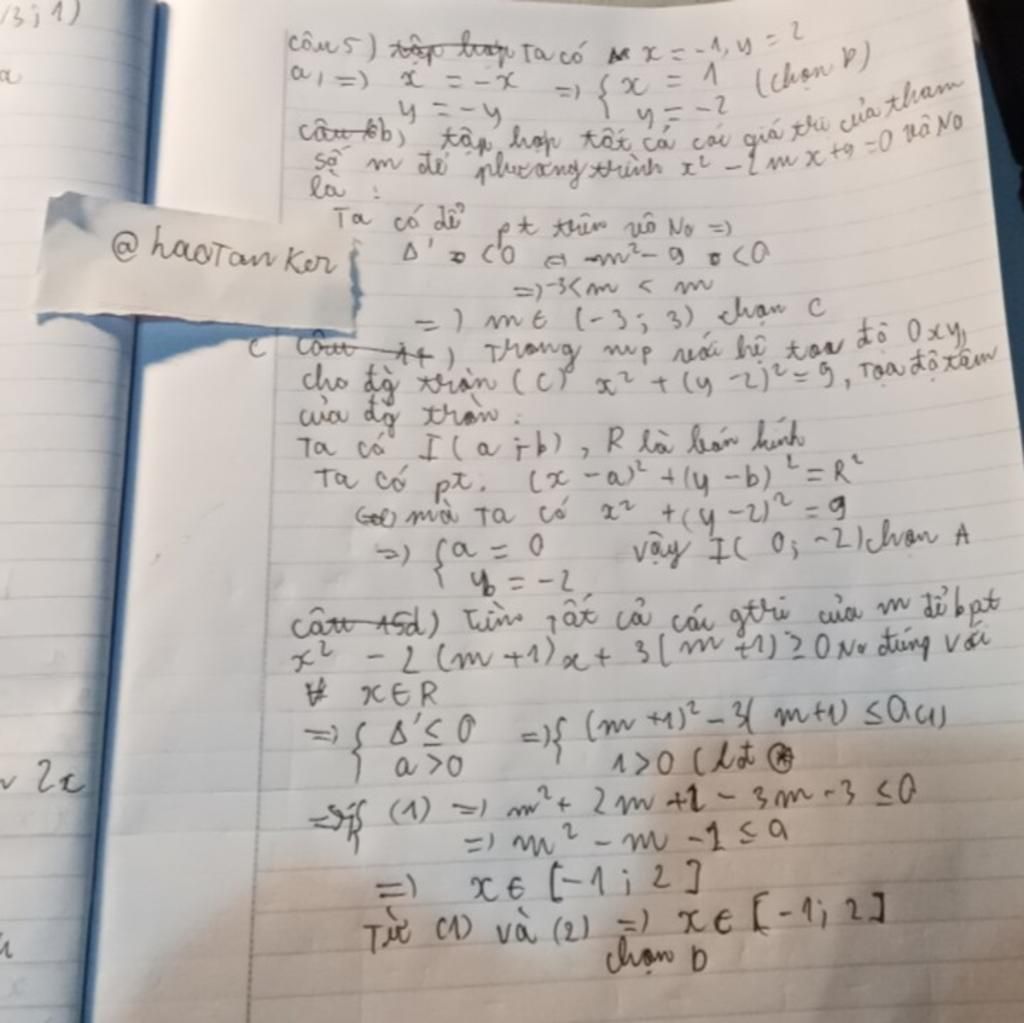 /3; 1)
2x
@haoTanKer
câu 5) tập hợp Ta có x = -1, y = 2
a, => x = -x => { x = 1 (chọn D)
y = -y y = -2
câu 6b) tập hợp tất cả các giá trị của tham
số m để phương trình x² - 2mx + 9 = 0 vô No
là :
Ta có để pt trên vô No =>
Δ' < 0 <=> m² - 9 < 0
=> -3 < m < m
=> m ∈ (-3; 3) chọn C
c câu 14) Trong mp với hệ toạ độ Oxy,
cho đg tròn (C) x² + (y - 2)² = 9, Toạ độ tâm
của đg tròn :
Ta có I(a; b), R là bán kính
Ta có pt. (x - a)² + (y - b)² = R²
mà Ta có x² + (y - 2)² = 9
=> { a = 0 vậy I( 0; -2) chọn A
b = -2
câu 15d) Tìm tất cả các gtri của m để bpt
x² - 2(m + 1)x + 3(m + 1) ≥ 0 No đúng với
∀ x ∈ R
=> { Δ' ≤ 0 => { (m + 1)² - 3(m + 1) ≤ 0 (1)
a > 0 1 > 0 (lđ
(1) => m² + 2m + 1 - 3m - 3 ≤ 0
=> m² - m - 2 ≤ 0
=> x ∈ [-1; 2]
Từ (1) và (2) => x ∈ [-1; 2]
chọn D